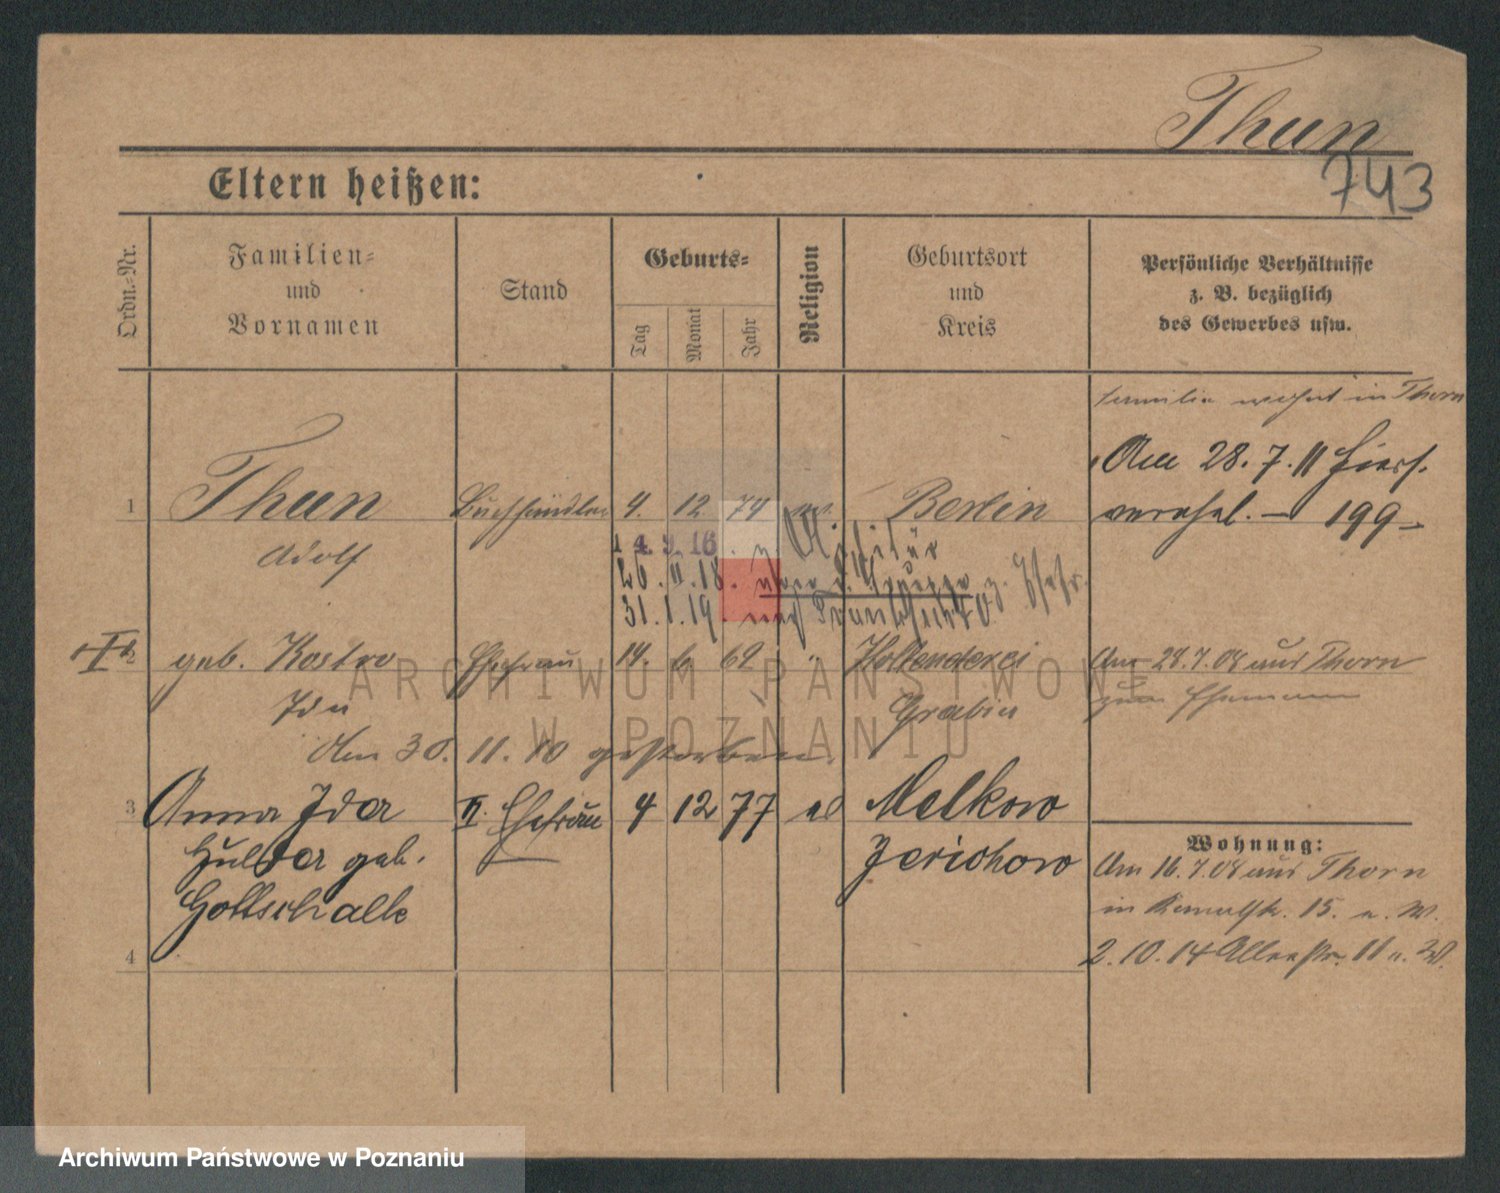 Thun
743
Eltern heißen:
Ordn.-Nr.
Familien-
und
Vornamen
Stand
Geburts-
Tag
Monat
Jahr
Religion
Geburtsort
und
Kreis
Persönliche Verhältnisse
z. B. bezüglich
des Gewerbes usw.
Familie wohnt in Thorn
Am 28.7.11 hiers.
verehel. — 199
1 Thun Buchhändler 4. 12. 74 ev. Berlin
Adolf
1 4. 9. 16. z. Militär
26. 11. 18.
31. 1. 19. nach
geb. Kostro Ehefrau 14. 6. 69 " Hollenderei
Ida Grabia
Am 28.7.08 aus Thorn
zum Ehemann
Am 30. 11. 10 gestorben.
3 Anna Ida II. Ehefrau 4 12 77 ev Melkow
Hulda geb. Jerichow
Gottschalk
4
Wohnung:
Am 16.7.08 aus Thorn
in 15. a. W.
2. 10. 14 11 a. W.
ARCHIWUM PAŃSTWOWE
W POZNANIU
Archiwum Państwowe w Poznaniu